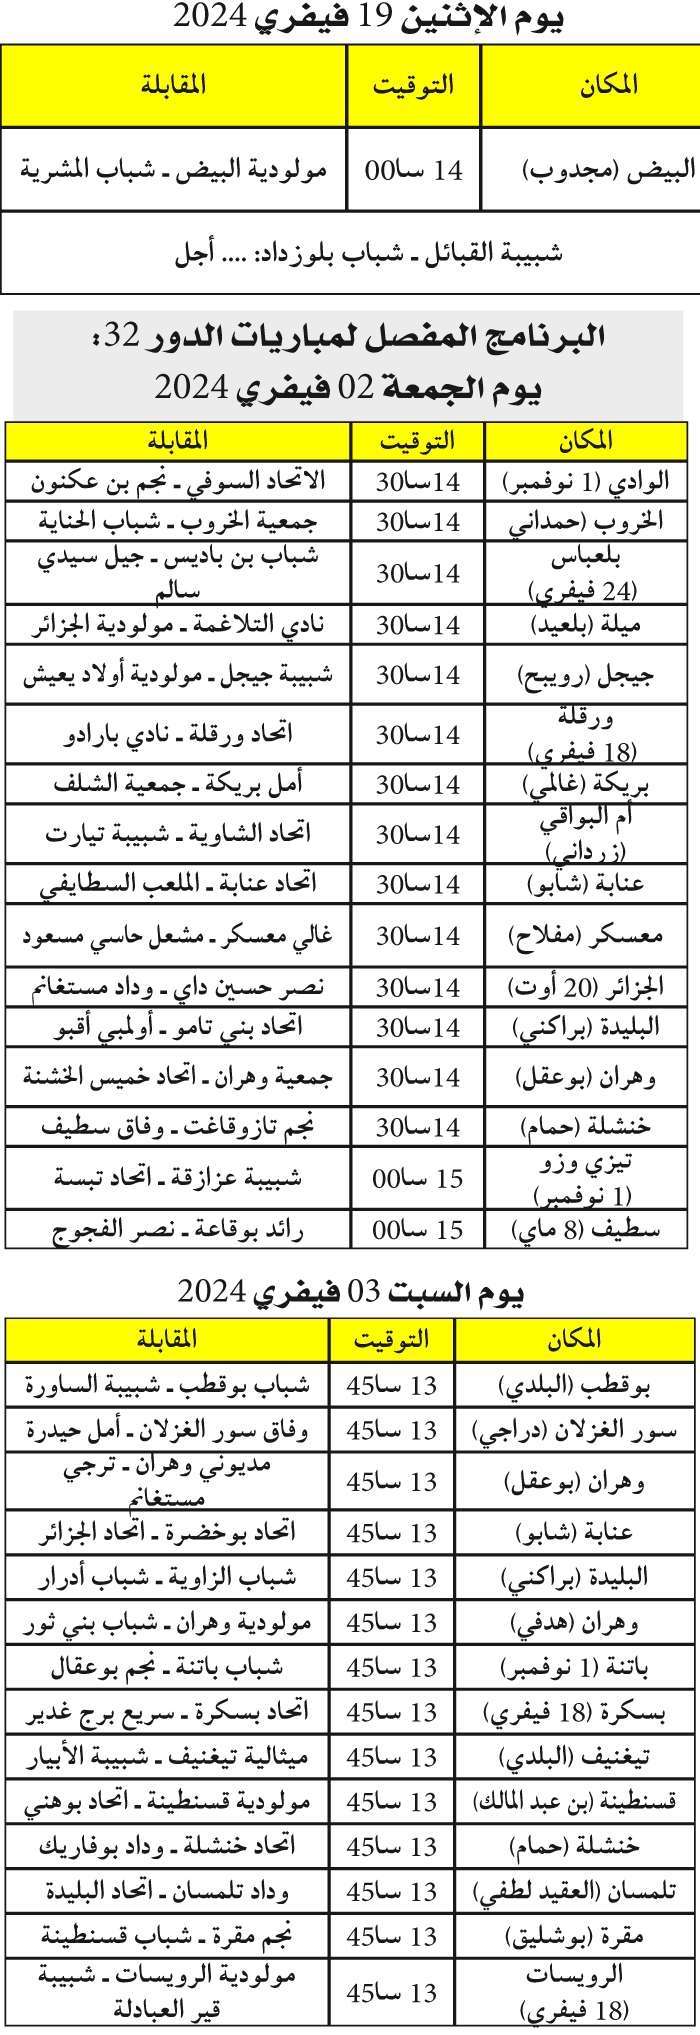 يوم الإثنين 19 فيفري 2024
المكان التوقيت المقابلة
البيض (مجدوب) 14 سا00 مولودية البيض ـ شباب المشرية
شبيبة القبائل ـ شباب بلوزداد: .... أجل
البرنامج المفصل لمباريات الدور 32:
يوم الجمعة 02 فيفري 2024
المكان التوقيت المقابلة
الوادي (1 نوفمبر) 14سا30 الاتحاد السوفي ـ نجم بن عكنون
الخروب (حمداني 14سا30 جمعية الخروب ـ شباب الحناية
بلعباس
(24 فيفري) 14سا30 شباب بن باديس ـ جيل سيدي
سالم
ميلة (بلعيد) 14سا30 نادي التلاغمة ـ مولودية الجزائر
جيجل (رويبح) 14سا30 شبيبة جيجل ـ مولودية أولاد يعيش
ورقلة
(18 فيفري) 14سا30 اتحاد ورقلة ـ نادي بارادو
بريكة (غالمي) 14سا30 أمل بريكة ـ جمعية الشلف
أم البواقي
(زرداني) 14سا30 اتحاد الشاوية ـ شبيبة تيارت
عنابة (شابو) 14سا30 اتحاد عنابة ـ الملعب السطايفي
معسكر (مفلاح) 14سا30 غالي معسكر ـ مشعل حاسي مسعود
الجزائر (20 أوت) 14سا30 نصر حسين داي ـ وداد مستغانم
البليدة (براكني) 14سا30 اتحاد بني تامو ـ أولمبي أقبو
وهران (بوعقل) 14سا30 جمعية وهران ـ اتحاد خميس الخشنة
خنشلة (حمام) 14سا30 نجم تازوقاغت ـ وفاق سطيف
تيزي وزو
(1 نوفمبر) 15 سا00 شبيبة عزازقة ـ اتحاد تبسة
سطيف (8 ماي) 15 سا00 رائد بوقاعة ـ نصر الفجوج
يوم السبت 03 فيفري 2024
المكان التوقيت المقابلة
بوقطب (البلدي) 13 سا45 شباب بوقطب ـ شبيبة الساورة
سور الغزلان (دراجي) 13 سا45 وفاق سور الغزلان ـ أمل حيدرة
وهران (بوعقل) 13 سا45 مديوني وهران ـ ترجي
مستغانم
عنابة (شابو) 13 سا45 اتحاد بوخضرة ـ اتحاد الجزائر
البليدة (براكني) 13 سا45 شباب الزاوية ـ شباب أدرار
وهران (هدفي) 13 سا45 مولودية وهران ـ شباب بني ثور
باتنة (1 نوفمبر) 13 سا45 شباب باتنة ـ نجم بوعقال
بسكرة (18 فيفري) 13 سا45 اتحاد بسكرة ـ سريع برج غدير
تيغنيف (البلدي) 13 سا45 ميثالية تيغنيف ـ شبيبة الأبيار
قسنطينة (بن عبد المالك) 13 سا45 مولودية قسنطينة ـ اتحاد بوهني
خنشلة (حمام) 13 سا45 اتحاد خنشلة ـ وداد بوفاريك
تلمسان (العقيد لطفي) 13 سا45 وداد تلمسان ـ اتحاد البليدة
مقرة (بوشليق) 13 سا45 نجم مقرة ـ شباب قسنطينة
الرويسات
(18 فيفري) 13 سا45 مولودية الرويسات ـ شبيبة
قير العبادلة